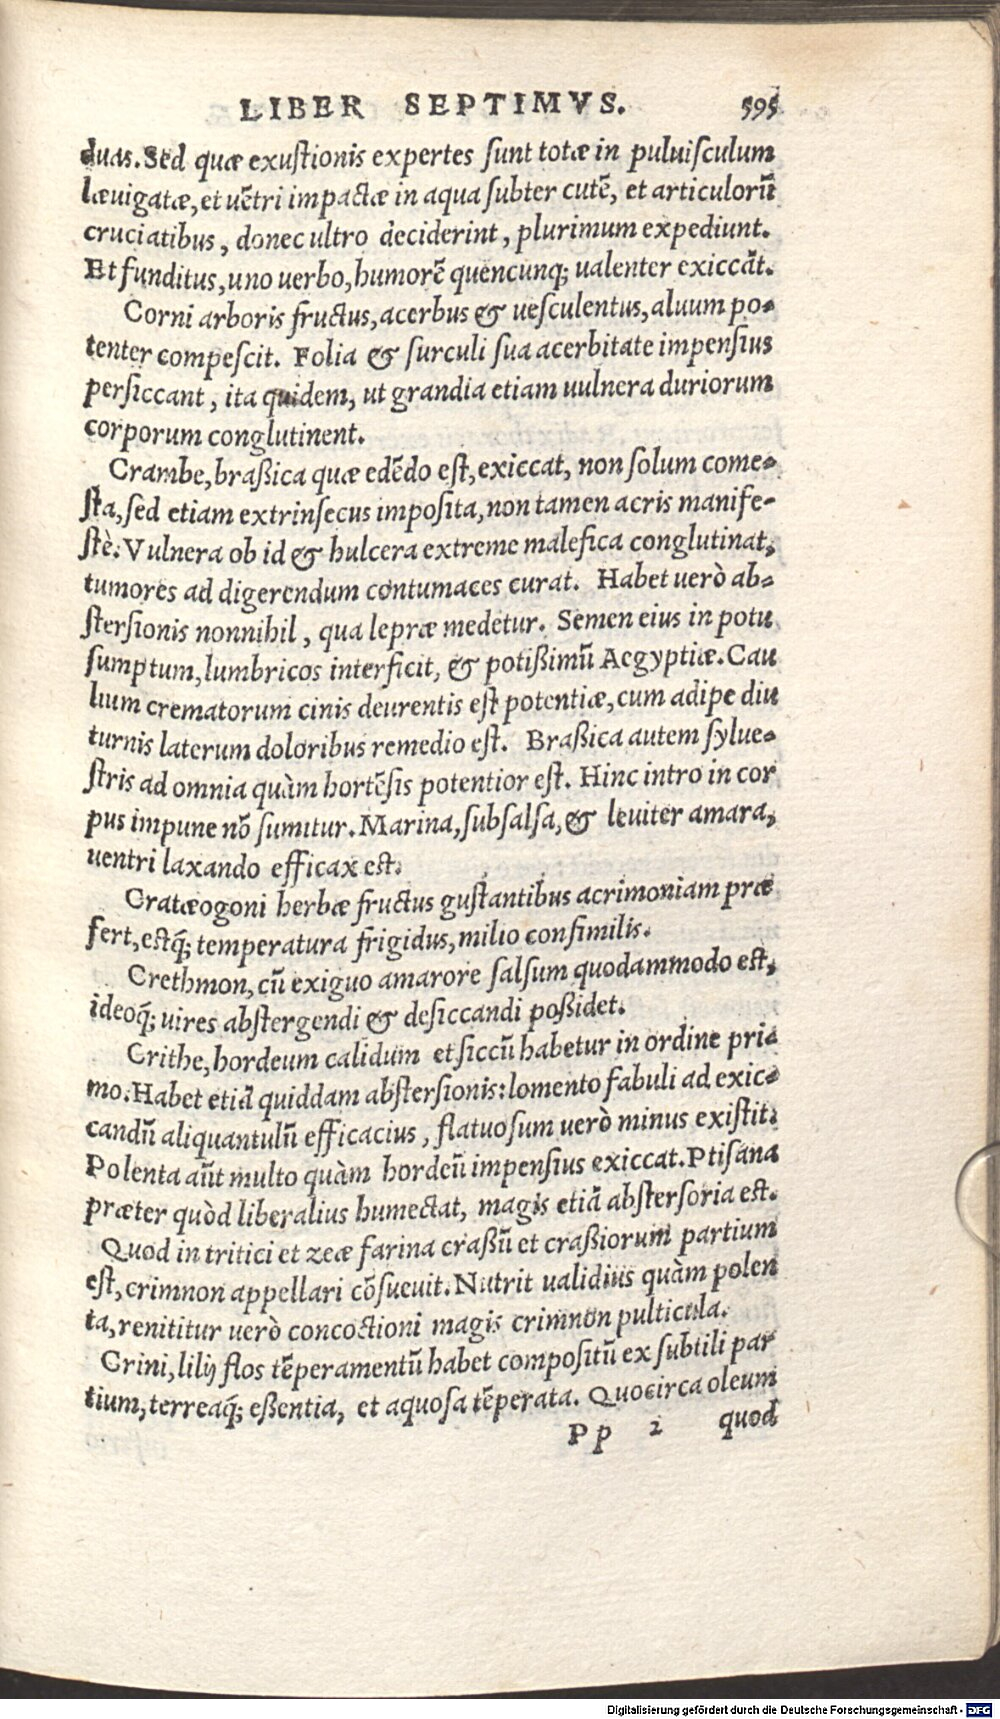 LIBER SEPTIMVS. 595
duas. Sed quæ exustionis expertes sunt totæ in puluisculum
læuigatæ, et uẽtri impactæ in aqua subter cutẽ, et articulorũ
cruciatibus, donec ultro deciderint, plurimum expediunt.
Et funditus, uno uerbo, humorẽ quencunq; ualenter exiccãt.
Corni arboris fructus, acerbus & uesculentus, aluum po-
tenter compescit. Folia & surculi sua acerbitate impensius
persiccant, ita quidem, ut grandia etiam uulnera duriorum
corporum conglutinent.
Crambe, braßica quæ edẽdo est, exiccat, non solum come-
sta, sed etiam extrinsecus imposita, non tamen acris manife-
stè. Vulnera ob id & hulcera extreme malefica conglutinat,
tumores ad digerendum contumaces curat. Habet uerò ab-
stersionis nonnihil, qua lepræ medetur. Semen eius in potu
sumptum, lumbricos interficit, & potißimũ Aegyptiæ. Cau
lium crematorum cinis deurentis est potentiæ, cum adipe diu
turnis laterum doloribus remedio est. Braßica autem sylue-
stris ad omnia quàm hortẽsis potentior est. Hinc intro in cor
pus impune nõ sumitur. Marina, subsalsa, & leuiter amara,
uentri laxando efficax est.
Cratæogoni herbæ fructus gustantibus acrimoniam præ
fert, estq́; temperatura frigidus, milio consimilis.
Crethmon, cũ exiguo amarore salsum quodammodo est,
ideoq́; uires abstergendi & desiccandi poßidet.
Crithe, hordeum calidum et siccũ habetur in ordine pri-
mo. Habet etiã quiddam abstersionis: lomento fabuli ad exic-
candũ aliquantulũ efficacius, flatuosum uerò minus existit.
Polenta aũt multo quàm hordeũ impensius exiccat. Ptisana
præter quòd liberalius humectat, magis etiã abstersoria est.
Quod in tritici et zeæ farina craßũ et craßiorum partium
est, crimnon appellari cõsueuit. Nutrit ualidius quàm polen
ta, renititur uerò concoctioni magis crimnon pulticula.
Crini, lilij flos tẽperamentũ habet compositũ ex subtili par
tium, terreaq́; eßentia, et aquosa tẽperata. Quocirca oleum
Pp 2 quod
Digitalisierung gefördert durch die Deutsche Forschungsgemeinschaft - DFG